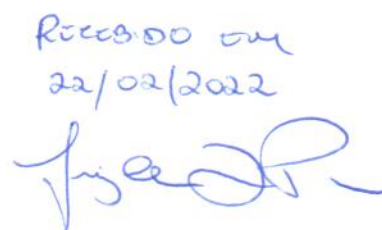 RECEBIDO em
22/02/2022